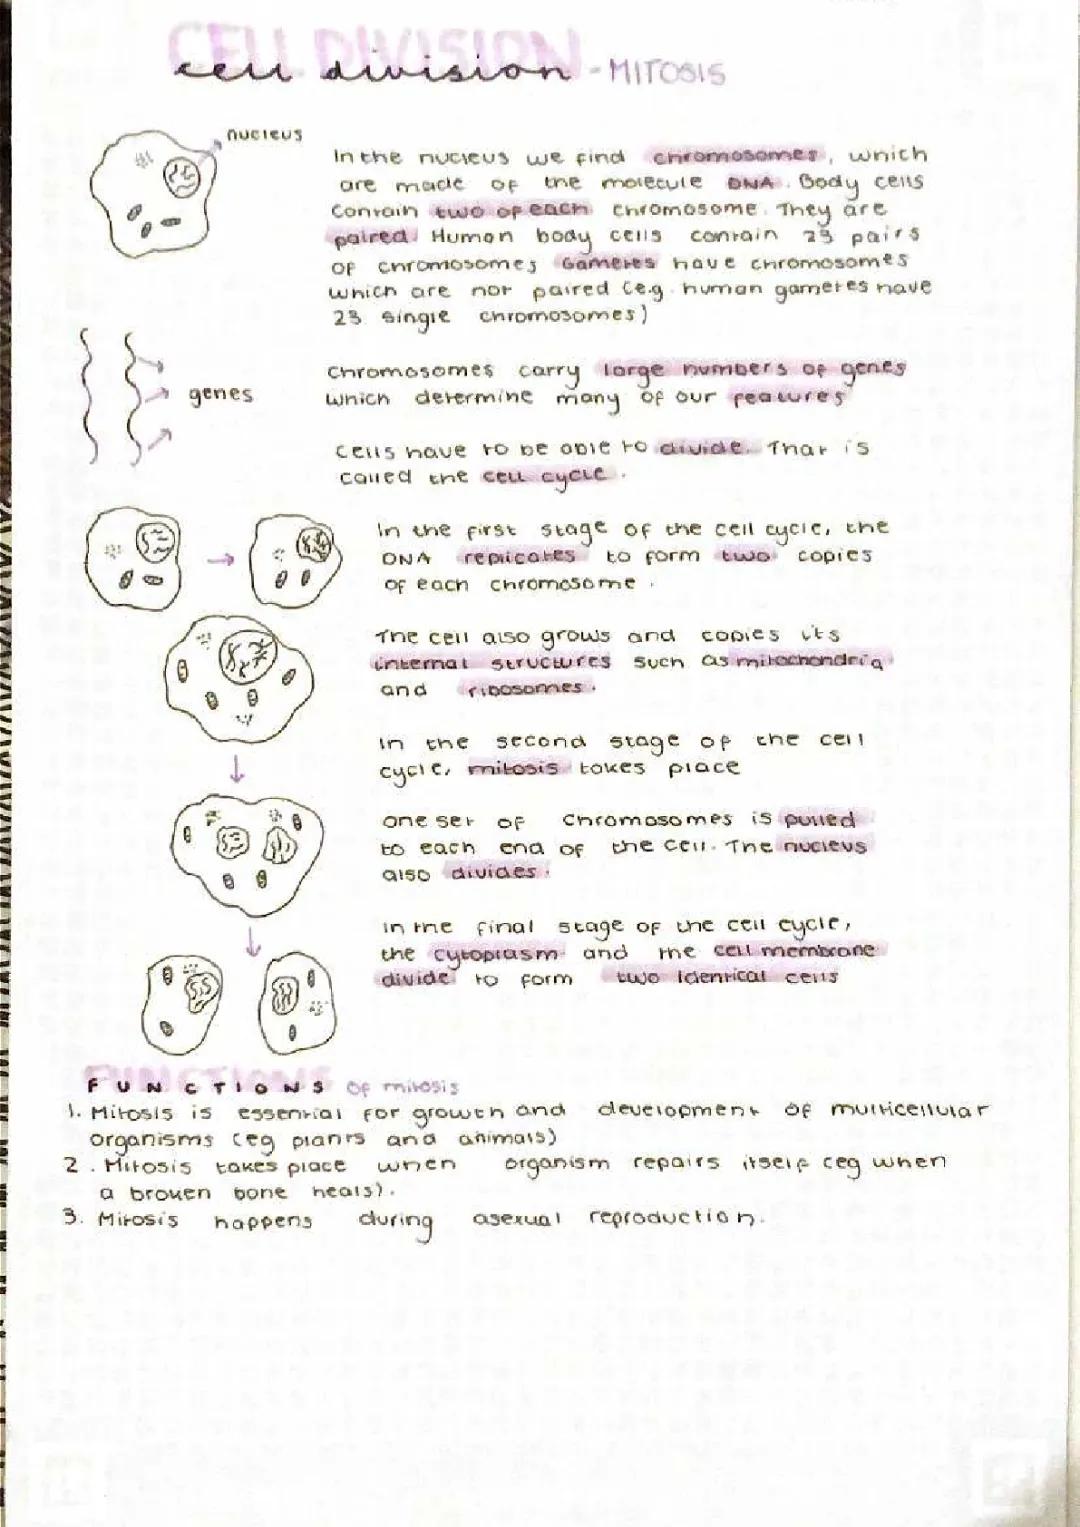 CELL DIVISION
cell division - MITOSIS
nucleus
In the nucleus we find chromosomes, which
are made of the molecule DNA. Body cells
contain two of each chromosome. They are
paired. Human body cells contain 23 pairs
of chromosomes. Gametes have chromosomes
which are not paired (e.g. human gametes have
23 single chromosomes)
genes
Chromosomes carry large numbers of genes
which determine many of our features
Cells have to be able to divide. That is
called the cell cycle.
In the first stage of the cell cycle, the
DNA replicates to form two copies
of each chromosome.
The cell also grows and copies its
internal structures such as mitochondria
and ribosomes.
In the second stage of the cell
cycle, mitosis takes place
one set of chromosomes is pulled
to each end of the cell. The nucleus
also divides.
in the final stage of the cell cycle,
the cytoplasm and the cell membrane
divide to form two identical cells
FUNCTIONS
FUNCTIONS of mitosis
1. Mitosis is essential for growth and development of multicellular
organisms (eg plants and animals)
2. Mitosis takes place when organism repairs itself (eg when
a broken bone heals).
3. Mitosis happens during asexual reproduction.